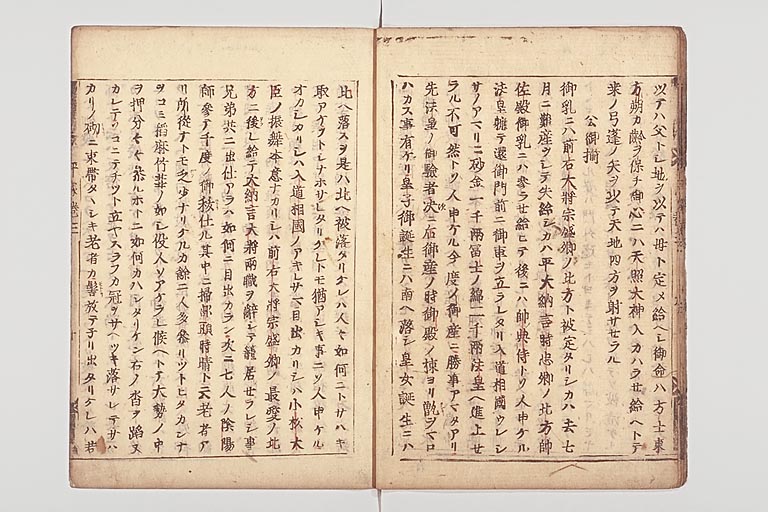 以テハ父トシ地ヲ以テハ母ト定メ給ヘシ御命ハ方士東
方朔カ齢ヲ保チ御心ニハ天照大神入カハラセ給ヘトテ
桑ノ弓蓬ノ矢ヲ以テ天地四方ヲ射サセラル
公卿揃
御乳ニハ前右大将宗盛卿ノ北方ト被定タリシカハ去七
月ニ難産ヲシテ失給シカハ平大納言時忠卿ノ北方帥
佐殿御乳ニハ参ラせ給ヒテ後ニハ帥典侍トソ人申ケル
法皇軈テ還御門前ニ御車ヲ立ラレタリ入道相國ウレシ
サノアマリニ砂金一千両冨士ノ綿二千両法皇ヘ進上せ
ラル不可然トソ人申ケル今度ノ御産ニ勝事アマタアリ
先法皇ノ御驗者次ニ后御産ノ時御殿ノ棟ヨリ甑ヲマロ
ハカス事有ケリ皇子御誕生ニハ南ヘ落シ皇女誕生ニハ
此ヘ落スヲ是ハ北ヘ被落タリケレハ人々如何ニトサハキ
取アケヲトシナホサレタリケレトモ猶アシキ事ニソ人申ケル
オカシカリシハ入道相國ノアキレサマ目出カリシハ小松大
臣ノ振舞本意ナカリシハ前右大将宗盛卿ノ最愛ノ北
方ニ後レ給テ大納言大将両職ヲ辭シテ籠居せラレシ事
兄弟共ニ出仕アラハ如何ニ目出カラン次ニ七人ノ陰陽
師参テ千度ノ御祓仕ル其中ニ掃部頭時晴ト云老者ア
リ所従ナトモ乏少ナリケルカ餘ニ人多参リツトヒタカンナ
ヲコミ稲麻竹葦ノ如シ役人ソアケラレ候ヘトテ大勢ノ中
ヲ押分々々参ルホトニ如何カハシタリケン右ノ沓ヲ蹈ヌ
カレテソコニテチツト立ヤスラフカ冠ヲサヘツキ落サレテサハ
カリノ砌ニ束帶タヽシキ老者カ髻放テチリ出タリケレハ若